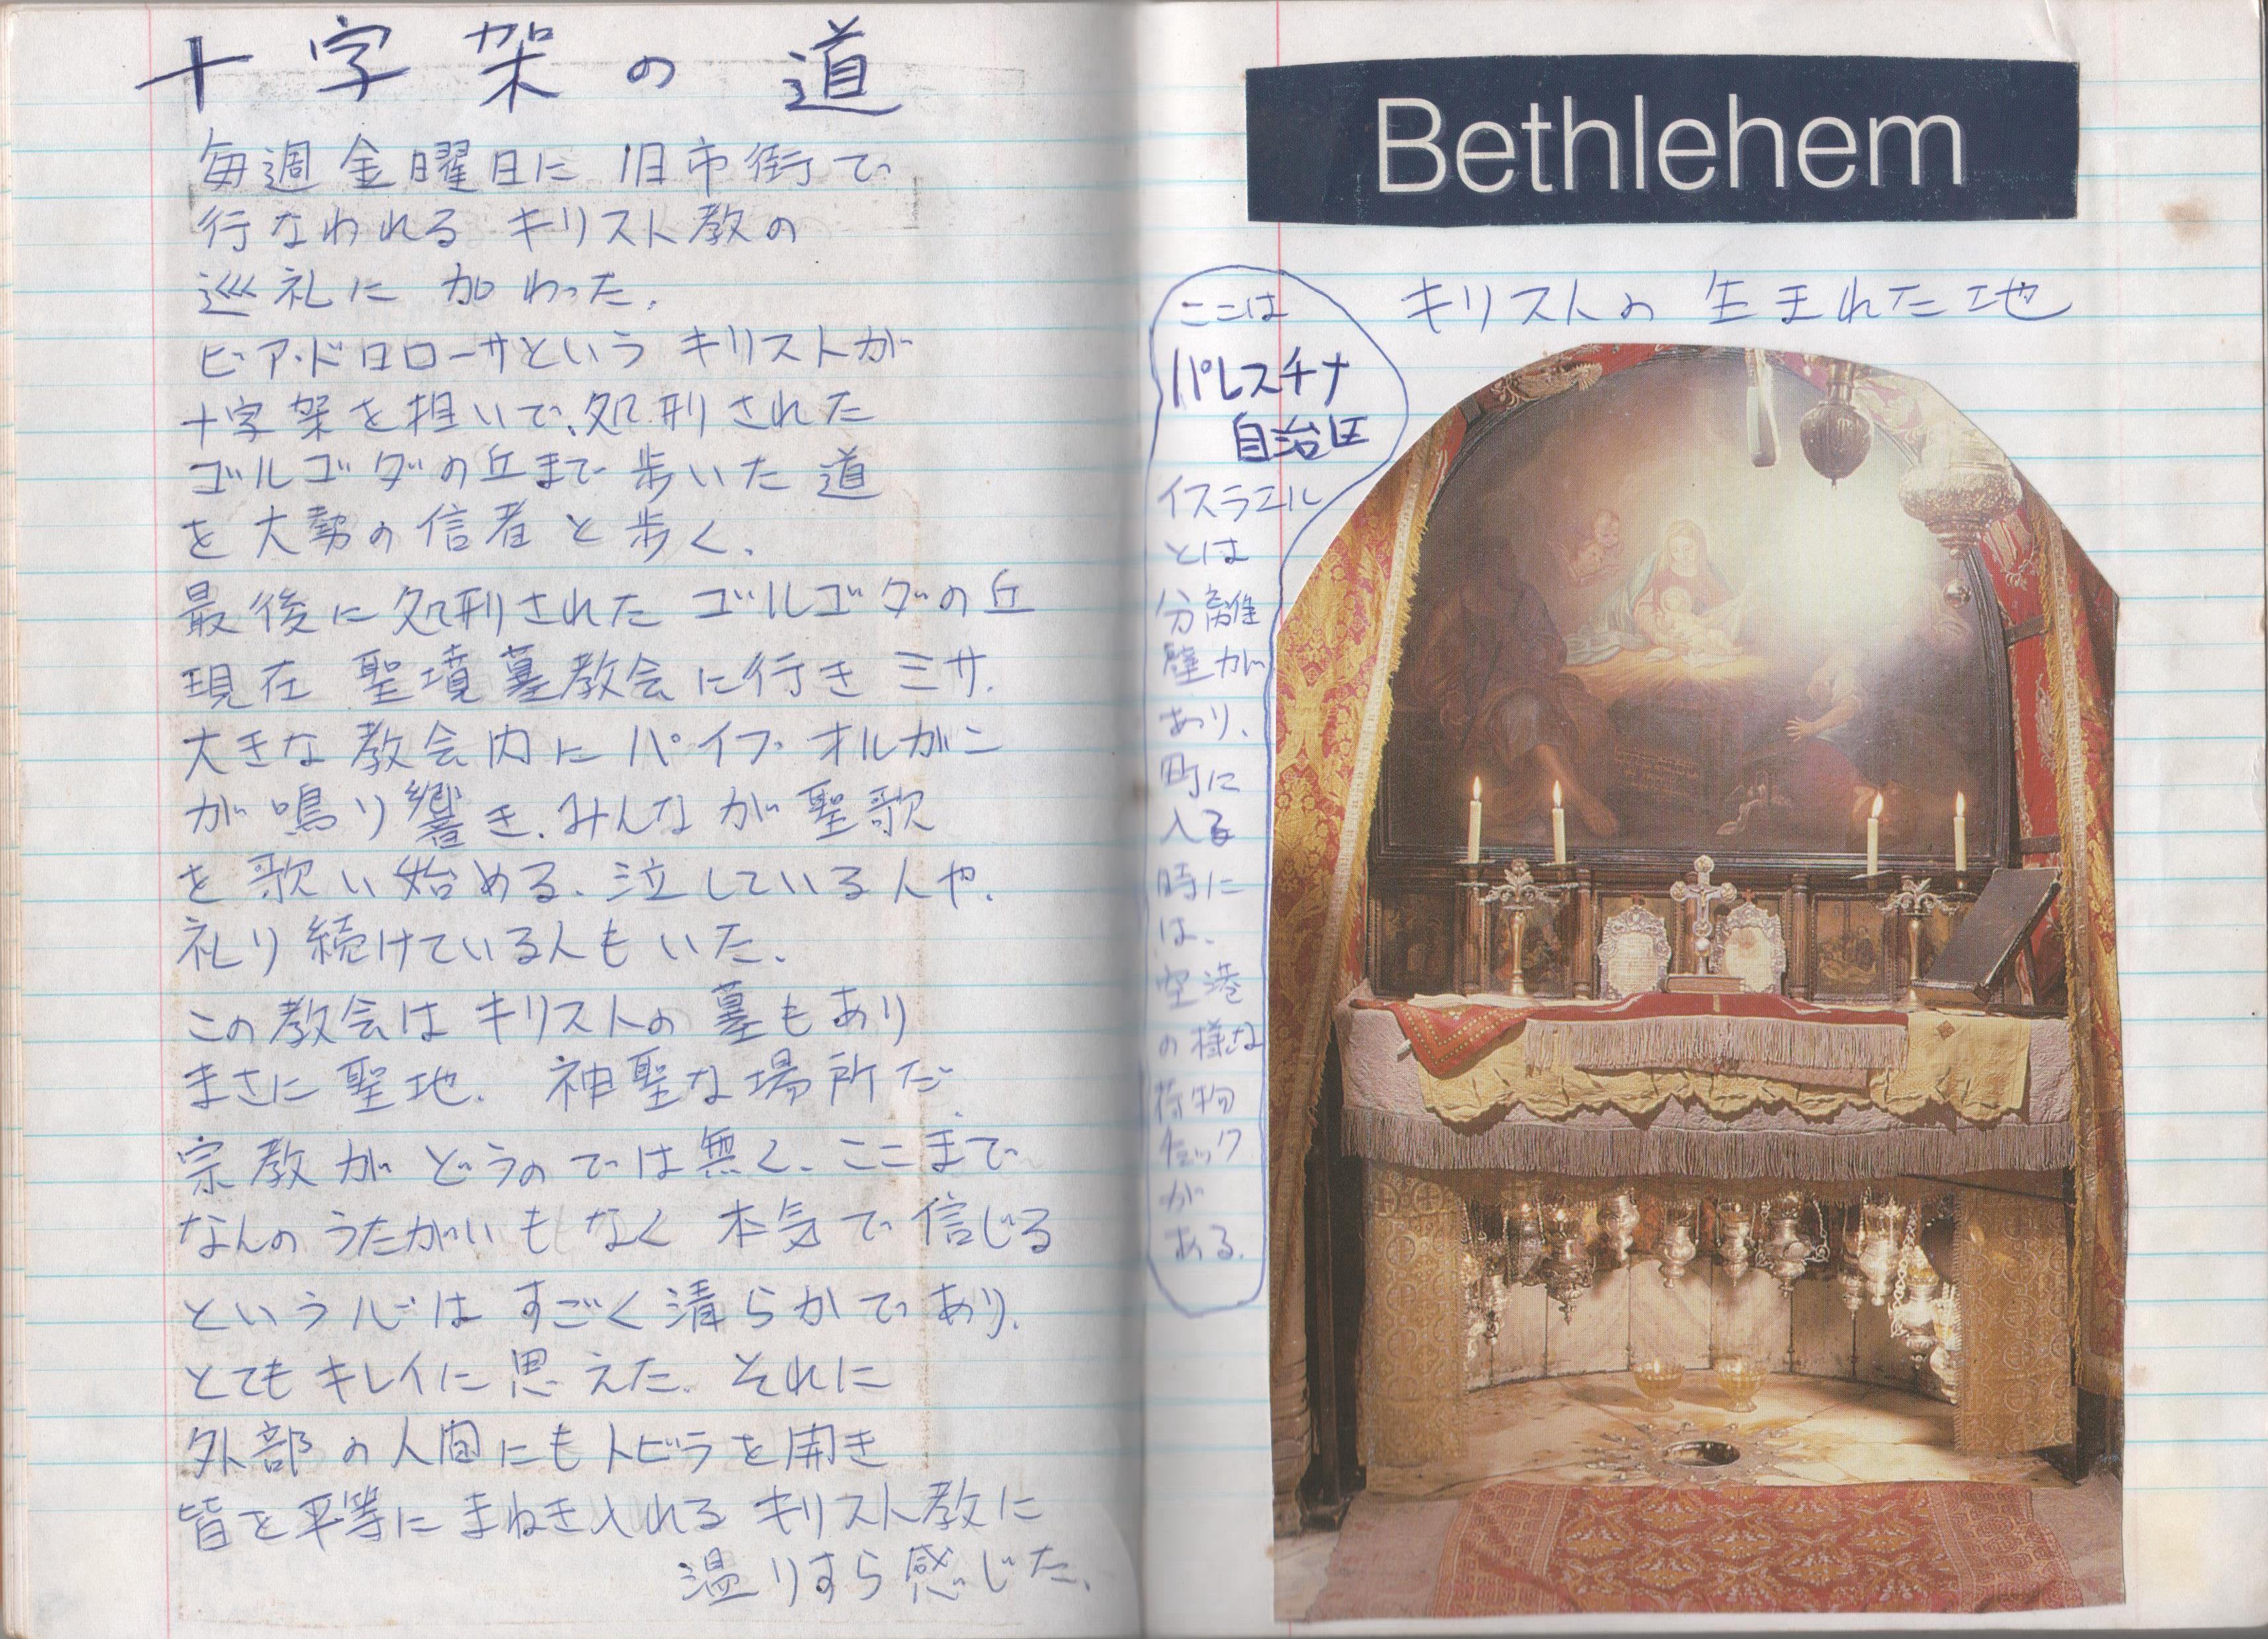 十字架の道
毎週金曜日に旧市街で
行なわれる キリスト教の
巡礼に 加わった.
ビア・ドロローサという キリストが
十字架を担いで、処刑された
ゴルゴダの丘まで 歩いた 道
を 大勢の信者 と 歩く.
最後に処刑された ゴルゴダの丘
現在 聖墳墓教会に行き ミサ.
大きな教会内に パイプオルガン
が 鳴り響き、みんな が 聖歌
を 歌い始める. 泣している人や.
礼り続けている人も いた.
この教会は キリストの 墓もあり
まさに 聖地. 神聖な場所だ.
宗教が どうのでは無く、ここまで
なんの うたがいも なく 本気で 信じる
という心は すごく清らかであり.
とても キレイに 思えた. それに
外部の人間にも トビラを開き
皆を平等に まねき入れる キリスト教に
温りすら感じた.
Bethlehem
キリストの 生まれた 地
ここは
パレスチナ
自治区
イスラエル
とは
分離
壁が
あり、
町に
入る
時に
は、
空港
の様な
荷物
チェック
が
ある.